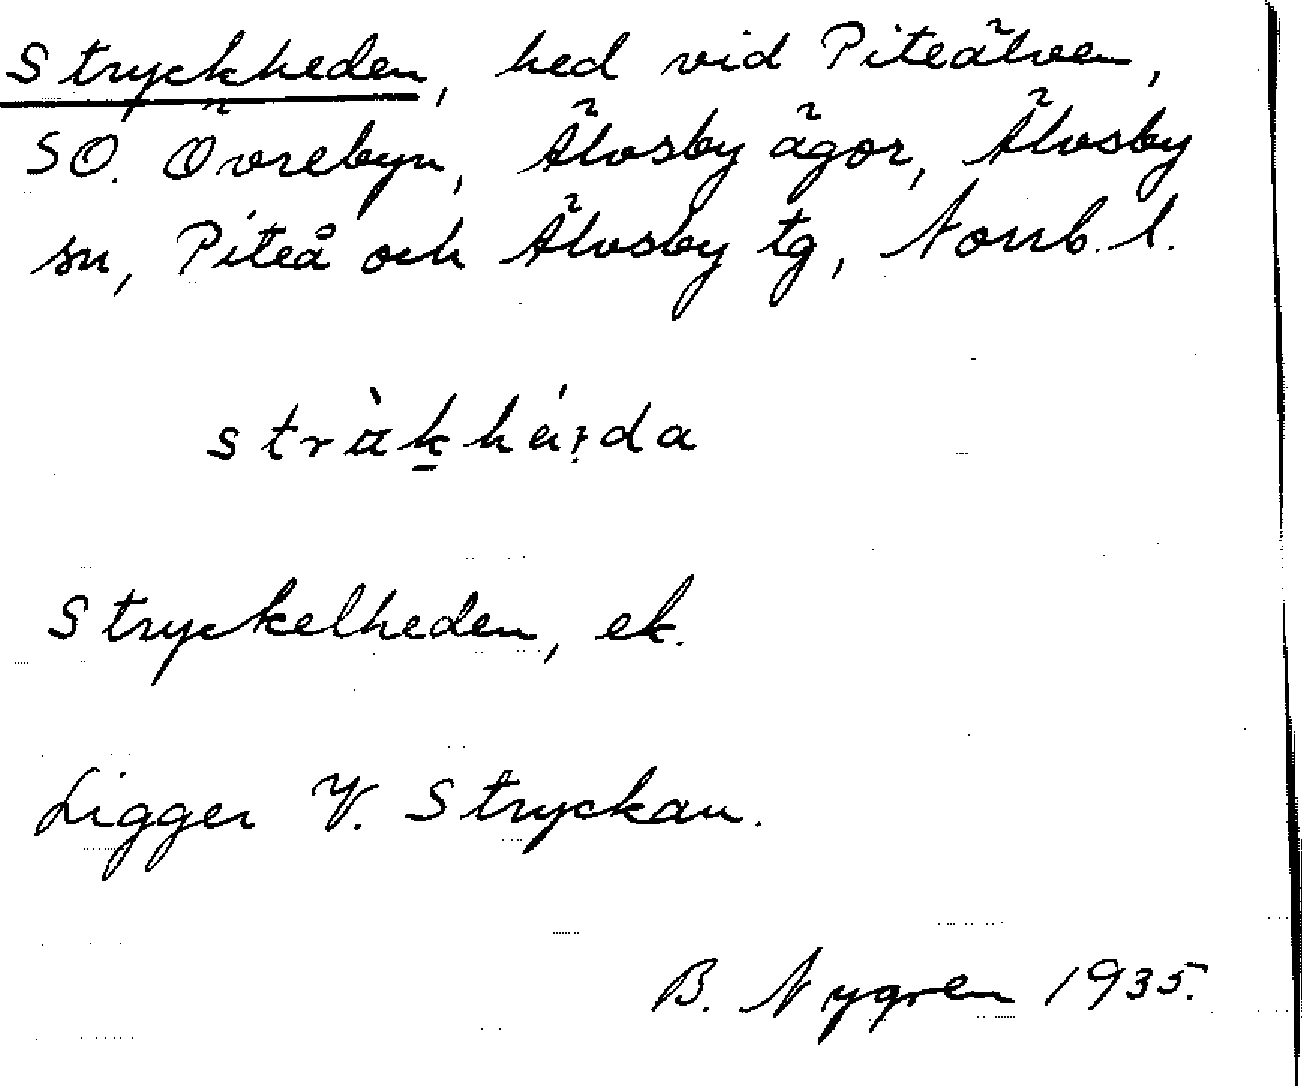 Stryckheden, hed vid Piteälven,
SO. Övrebyn, Älvsby ägor, Älvsby
sn, Piteå och Älvsby tg, Norrb. l.
Stryckelheden, ek.
Ligger V. Stryckan.
B. Nygren 1935.